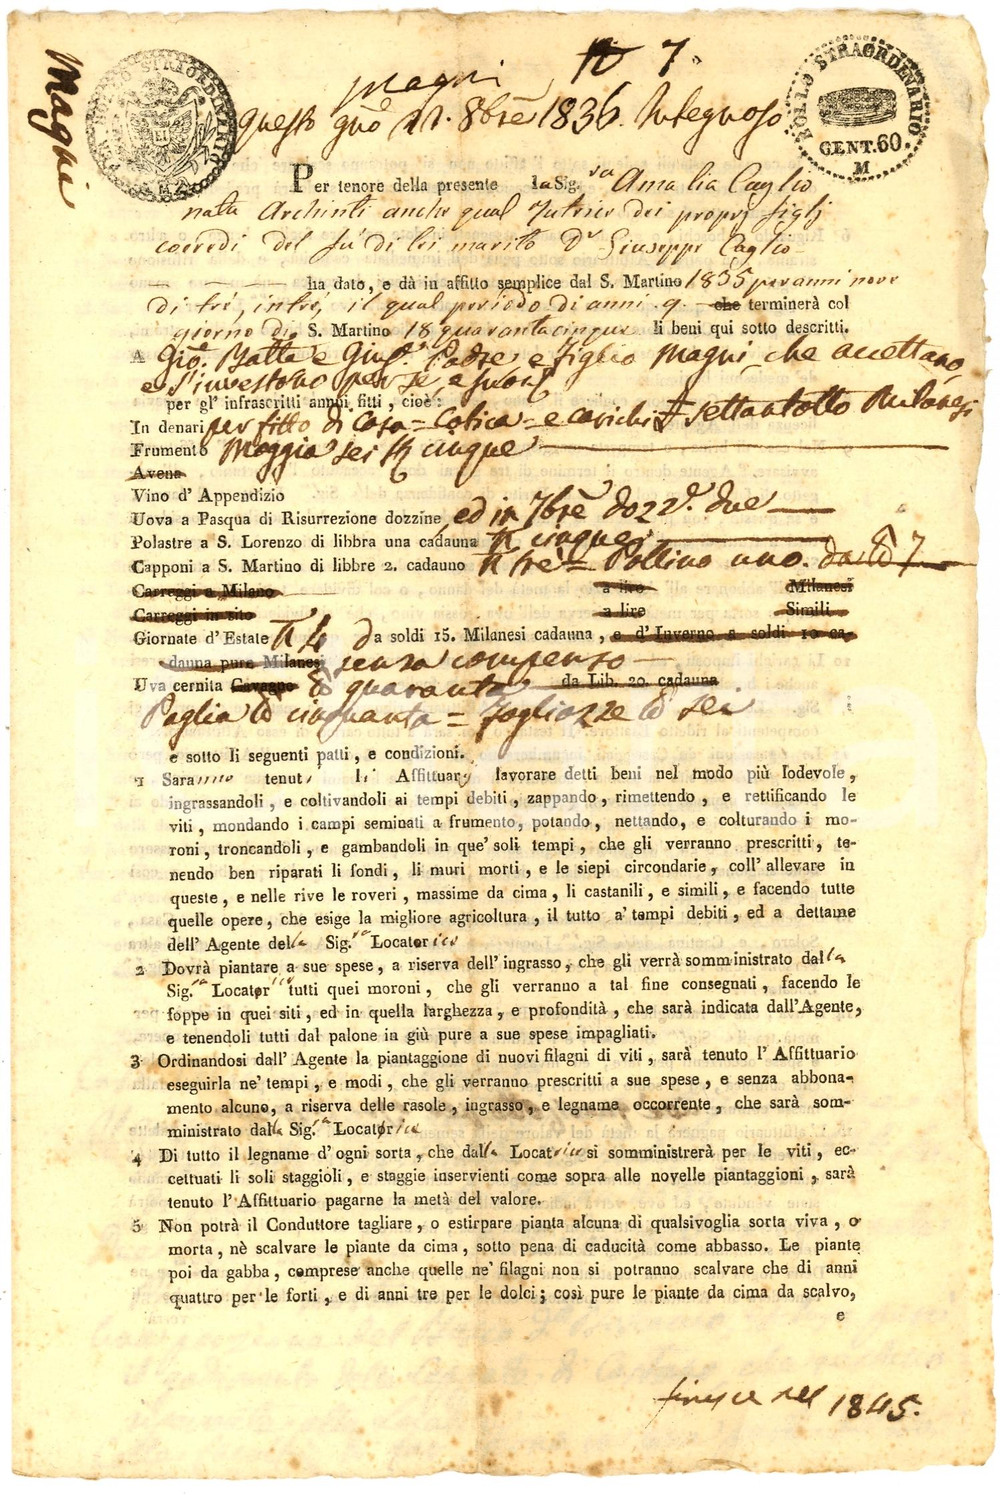 Magni
PER BOLLO STRAORDINARIO
BOLLO STRAORDINARIO
CENT. 60
M
N 7.
Magni
Questo gno 22. 8bre 1836. Integnoso
Per tenore della presente la Sig.ra Amalia Caglio
nata Archinti anche qual Tutrice dei proprj figlj
coeredi del fu di lei marito Dr Giuseppe Caglio
ha dato, e dà in affitto semplice dal S. Martino 1835 per anni nove
di tré, in tré, il qual periodo di anni 9. che terminerà col
giorno di S. Martino 18 quarantacinque li beni qui sotto descritti.
A Gio. Batta e Gius.e Padre e Figlio Magni, che accettano,
e s'investono per se, e suoi
per gl' infrascritti annui fitti, cioè:
In denari per fitto di Casa = Cotica = e carichi settantotto Milanesi
Frumento Moggia sei N cinque
Avena
Vino d' Appendizio
Uova a Pasqua di Risurrezione dozzine, ed in 7bre dozz.e due
Polastre a S. Lorenzo di libbra una cadauna N cinque
Capponi a S. Martino di libbre 2. cadauno N tre = Pollino uno. da lb 7
Carreggi a Milano a lire Milanesi
Carreggi in sito a lire Simili
Giornate d' Estate N 4 da soldi 15. Milanesi cadauna, e d' Inverno a soldi 10 ca-
dauna pure Milanesi senza compenso
Uva cernita Cavagne lb quaranta da Lib. 20. cadauna
Paglia lb cinquanta = Fogliazze lb sei
e sotto li seguenti patti, e condizioni.
1 Saranno tenuti li Affittuarj lavorare detti beni nel modo più lodevole,
ingrassandoli, e coltivandoli ai tempi debiti, zappando, rimettendo, e rettificando le
viti, mondando i campi seminati a frumento, potando, nettando, e colturando i mo-
roni, troncandoli, e gambandoli in que' soli tempi, che gli verranno prescritti, te-
nendo ben riparati li fondi, li muri morti, e le siepi circondarie, coll' allevare in
queste, e nelle rive le roveri, massime da cima, li castanili, e simili, e facendo tutte
quelle opere, che esige la migliore agricoltura, il tutto a' tempi debiti, ed a dettame
dell' Agente della Sig.ra Locatorice
2 Dovrà piantare a sue spese, a riserva dell' ingrasso, che gli verrà somministrato dalla
Sig.ra Locatorice tutti quei moroni, che gli verranno a tal fine consegnati, facendo le
foppe in quei siti, ed in quella larghezza, e profondità, che sarà indicata dall'Agente,
e tenendoli tutti dal palone in giù pure a sue spese impagliati.
3 Ordinandosi dall' Agente la piantaggione di nuovi filagni di viti, sarà tenuto l' Affittuario
eseguirla ne' tempi, e modi, che gli verranno prescritti a sue spese, e senza abbona-
mento alcuno, a riserva delle rasole, ingrasso, e legname occorrente, che sarà som-
ministrato dalla Sig.ra Locatorice
4 Di tutto il legname d' ogni sorta, che dalla Locatrice si somministrerà per le viti, ec-
cettuati li soli staggioli, e staggie inservienti come sopra alle novelle piantaggioni, sarà
tenuto l' Affittuario pagarne la metà del valore.
5 Non potrà il Conduttore tagliare, o estirpare pianta alcuna di qualsivoglia sorta viva, o
morta, nè scalvare le piante da cima, sotto pena di caducità come abbasso. Le piante
poi da gabba, comprese anche quelle ne' filagni non si potranno scalvare che di anni
quattro per le forti, e di anni tre per le dolci; così pure le piante da cima da scalvo,
e
finisce nel 1845.